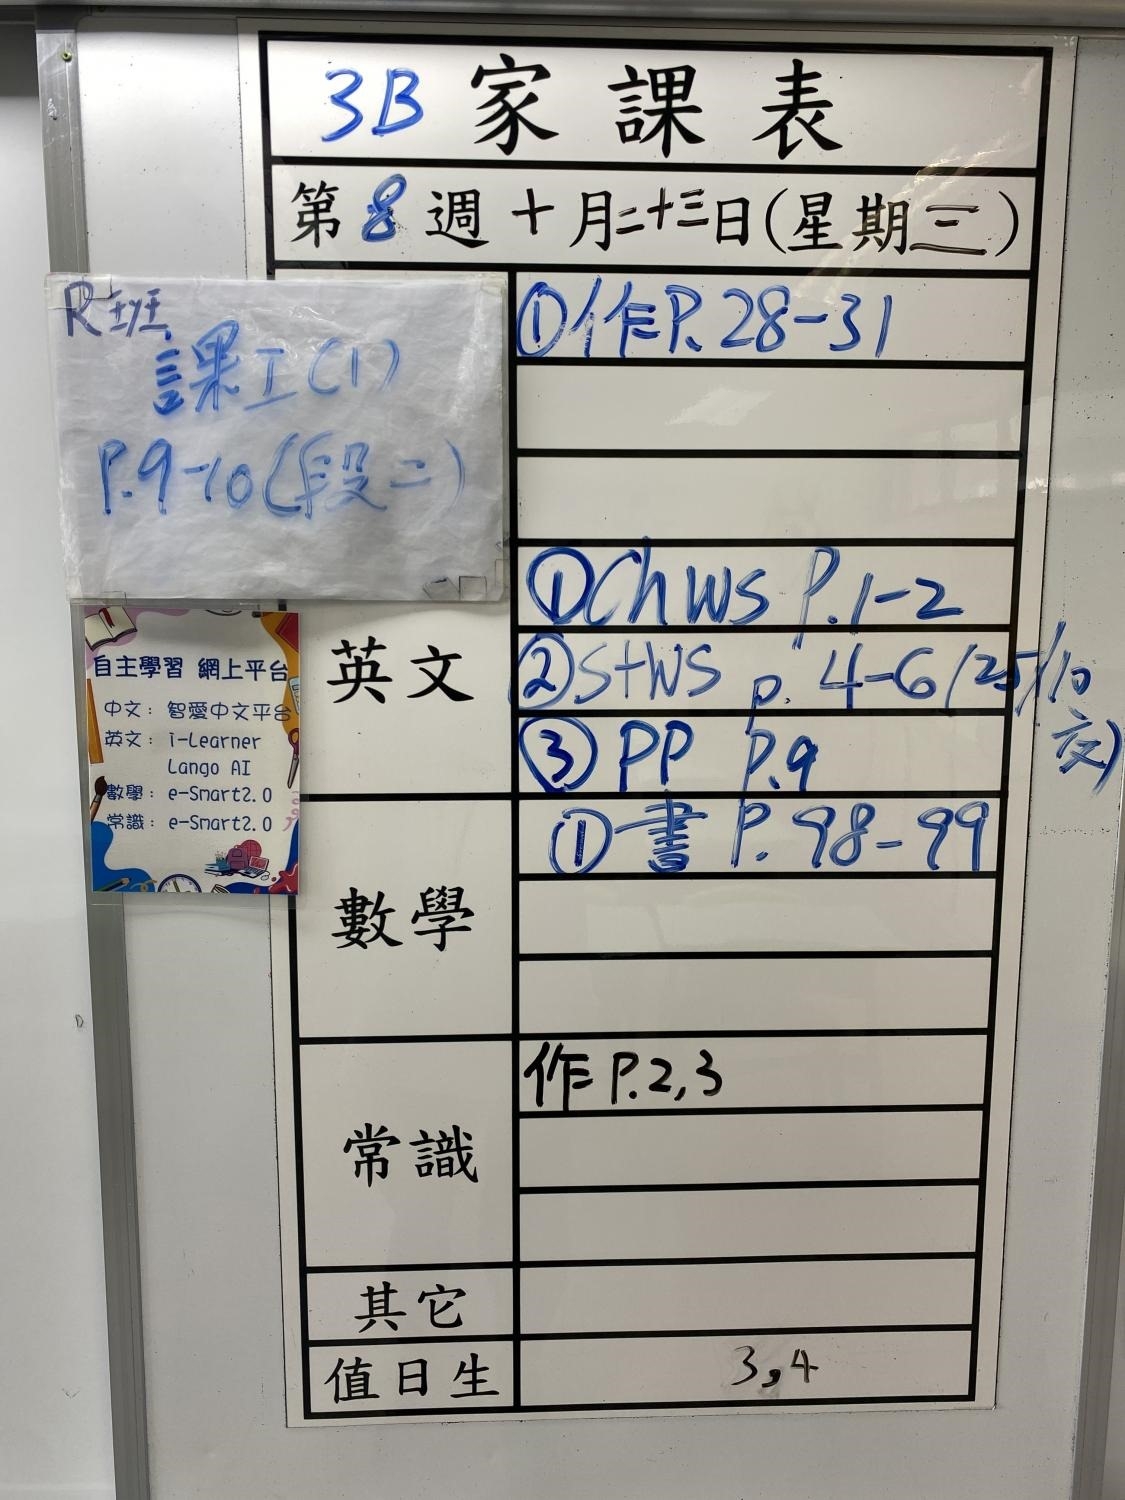 3B 家課表
第8週十月二十三日(星期三)
R班
課工(1)
P.9-10(段二)
①作P.28-31
英文
①Ch WS P.1-2
②St WS p. 4-6 (25/10交)
③PP P.9
數學
①書 P. 98-99
常識
作 P.2,3
其它
值日生
3,4
自主學習 網上平台
中文：智愛中文平台
英文：i-Learner
Lango AI
數學：e-Smart2.0
常識：e-Smart2.0